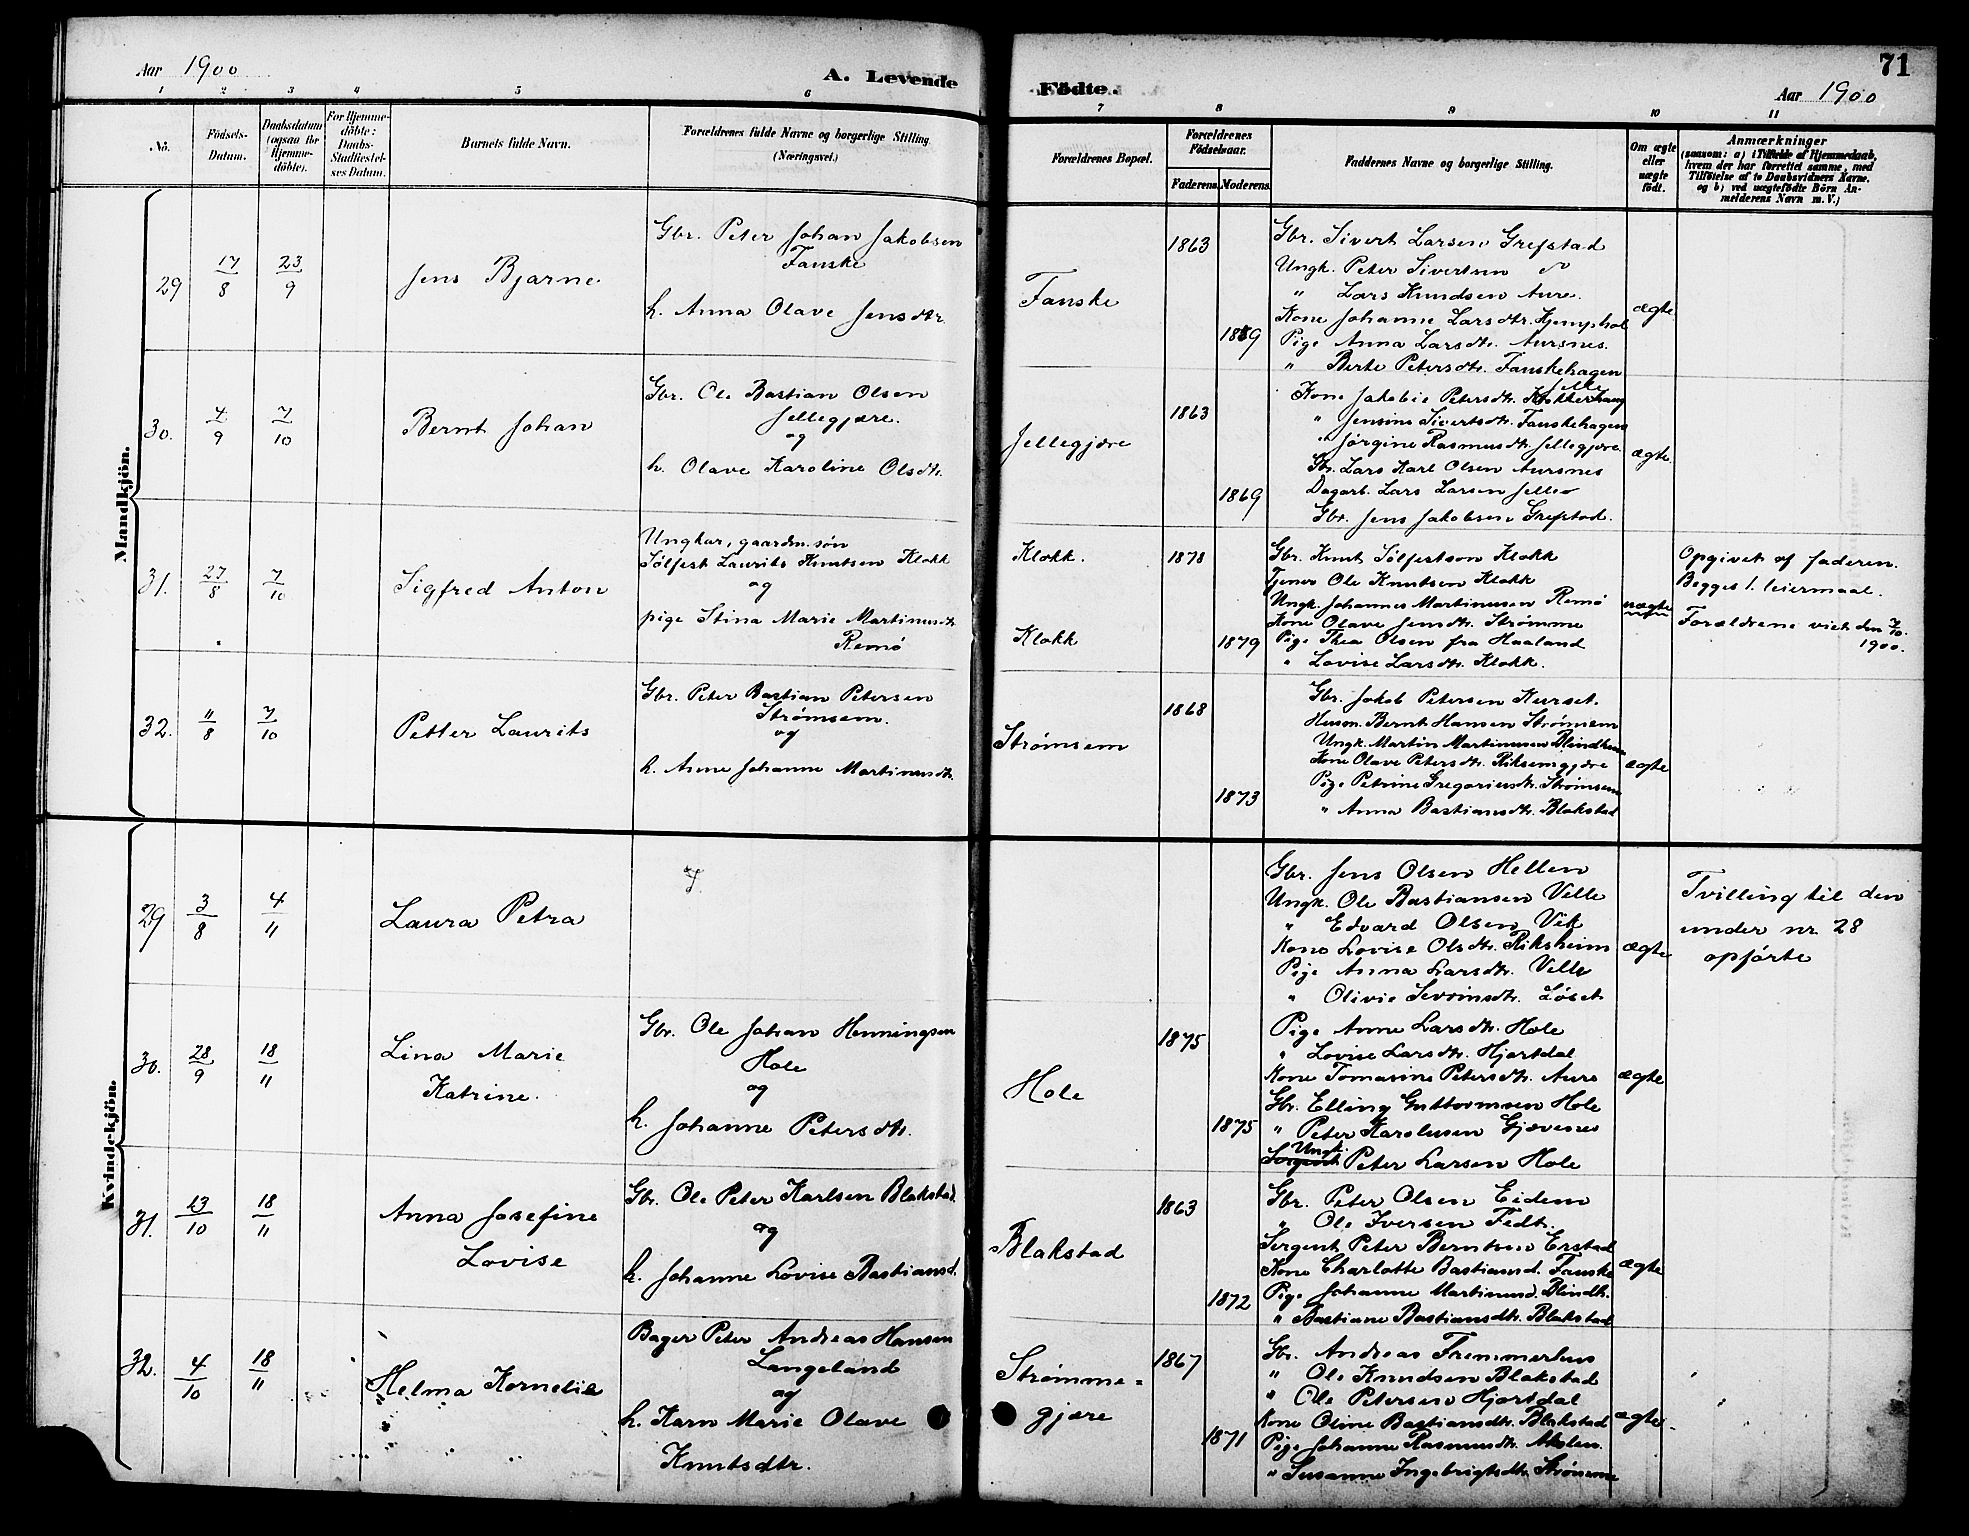 Aar 1900
A. Levende
Fødte.
Aar 1900
71
1 2 3 4 5 6 7 8 9 10 11
No.
Fødsels-
Datum.
Daabsdatum
(ogsaa for
Hjemme-
døbte).
For Hjemme-
døbte:
Daabs-
Stadfæstel-
ses Datum.
Barnets fulde Navn.
Forældrenes fulde Navne og borgerlige Stilling
(Næringsvei.)
Forældrenes Bopæl.
Forældrenes
Fødselsaar.
Faderens.
Moderens.
Faddernes Navne og borgerlige Stilling.
Om ægte
eller
uægte
født.
Anmærkninger
(saasom: a) i Tilfælde af Hjemmedaab,
hvem der har forrettet samme, med
Tilføielse af to Daabsvidners Navne.
og b) ved uægtefødte Børn An-
melderens Navn m. V.)
Mandkjøn.
29
17/8
23/9
Jens Bjarne
Gbr. Peter Johan Jakobsen
Fauske
h. Anna Olave Jensdtr.
Fauske
1863
1859
Gbr. Sivert Larsen Grefstad
Ungk. Peter Sivertsen
" Lars Knudsen Aure.
Kone Johanne Larsdtr. Kjemphol
Pige Anna Larsdtr. Aursnes.
" Berte Petersdtr. Fauskehagen
ægte
30.
4/9
7/10
Bernt Johan
Gbr. Ole Bastian Olsen
Jellegjære.
og
h. Olave Karoline Olsdtr.
Jellegjære
1863
1869
Jelle
Kone Jakobie Petersdtr.
" Jensine Sivertsdtr. Fauskehagen
" Jørgine Rasmusdtr. Jellegjære
Gbr. Lars Karl Olsen Aursnes
Dagarb. Lars Larsen Jelle
Gbr. Jens Jakobsen Grefstad.
ægte
31.
27/8
7/10
Sigfred Anton
Ungkar, gaardm. søn
Sølfest Laurits Knutsen Klokk
og
pige Stina Marie Martinusdtr
Remø
Klokk.
Klokk
1878
1879
Gbr. Knut Sølfestson Klokk
Tjener Ole Knutsen Klokk
Ungk. Johannes Martinusen Remø
Kone Olave Jensdtr. Strømme
Pige Thea Olsen fra Haaland
" Lovise Larsdtr. Klokk.
uægte
Opgivet af faderen.
Begges 1. leiermaal.
Forældrene viet den 7/10.
1900.
32.
11/8
7/10
Petter Laurits
Gbr. Peter Bastian Petersen
Strømsem.
og
h. Anne Johanne Martinusdtr.
Strømsem
1868
1873
Gbr. Jakob Petersen Kurset.
Husm. Bernt Hansen Strømsem
Ungk. Martin Martinusen Blindheim
Kone Olave Petersdtr. Riksemgjære
Pige Petrine Gregoriusdtr. Strømsem
" Anna Bastiansdtr. Blakstad
ægte
Kvindekjøn.
29
3/8
4/11
Laura Petra
Gbr. Jens Olsen Hellen
Ungk. Ole Bastiansen Velle
" Edvard Olsen Vik
Kone Lovise Olsdtr. Riksheim
Pige Anna Larsdtr. Velle
" Olivie Severinsdtr. Løset
ægte
Tvilling til den
under nr. 28
opførte
30.
28/9
18/11
Lina Marie
Katrine.
Gbr. Ole Johan Henningsen
Hole
og
h. Johanne Petersdtr.
Hole
1875
1875
Pige Anne Larsdtr. Hole
" Lovise Larsdtr. Hjortdal
Kone Tomasine Petersdtr. Aure
Gbr. Elling Guttormsen Hole
" Peter Karolusen Gjævenes
Ungk.
Sergeant Peter Larsen Hole
ægte
31.
13/10
18/11
Anna Josefine
Lovise
Gbr. Ole Peter Karlsen Blakstad
og
h. Johanne Lovise Bastiansd.
Blakstad
1863
1872
Gbr. Peter Olsen Eidem
" Ole Iversen Fedt.
Sergent Peter Berntsen Erstad
Kone Charlotte Bastiansd. Fauske
Pige Johanne Martinusd. Blindh.
" Bastiane Bastiansdtr. Blakstad
ægte
32.
4/10
18/11
Helma Kornelie
Bager Peter Andreas Hansen
Langeland
og
h. Karn Marie Olave
Knutsdtr.
Strømme=
gjære
1867
1871
Gbr. Andreas Fremmerhus
" Ole Knudsen Blakstad
" Ole Petersen Hjortdal
Kone Oline Bastiansdtr. Blakstad
Pige Johanne Rasmusdtr. Akslen.
" Susanne Ingebrigtsdtr. Strømme
ægte